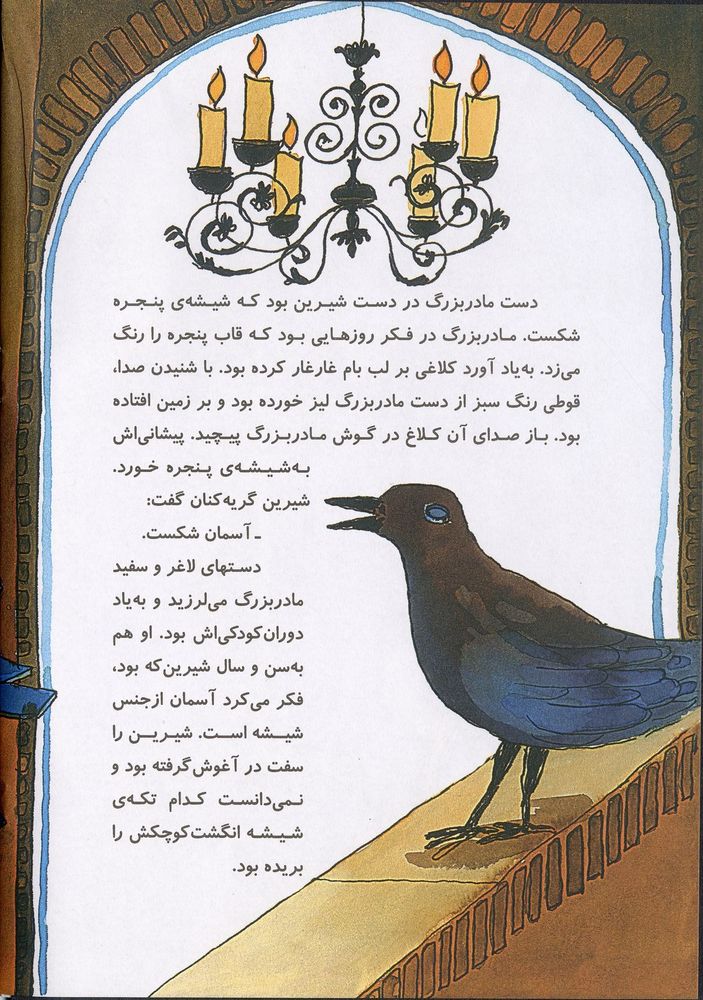 دست مادربزرگ در دست شیرین بود که شیشه‌ی پنجره
شکست. مادربزرگ در فکر روزهایی بود که قاب پنجره را رنگ
می‌زد. به‌یاد آورد کلاغی بر لب بام غارغار کرده بود. با شنیدن صدا،
قوطی رنگ سبز از دست مادربزرگ لیز خورده بود و بر زمین افتاده
بود. باز صدای آن کلاغ در گوش مادربزرگ پیچید. پیشانی‌اش
به‌شیشه‌ی پنجره خورد.
شیرین گریه‌کنان گفت:
ـ آسمان شکست.
دستهای لاغر و سفید
مادربزرگ می‌لرزید و به‌یاد
دوران‌کودکی‌اش بود. او هم
به‌سن و سال شیرین‌که بود،
فکر می‌کرد آسمان ازجنس
شیشه است. شیرین را
سفت در آغوش‌گرفته بود و
نمی‌دانست کدام تکه‌ی
شیشه انگشت‌کوچکش را
بریده بود.